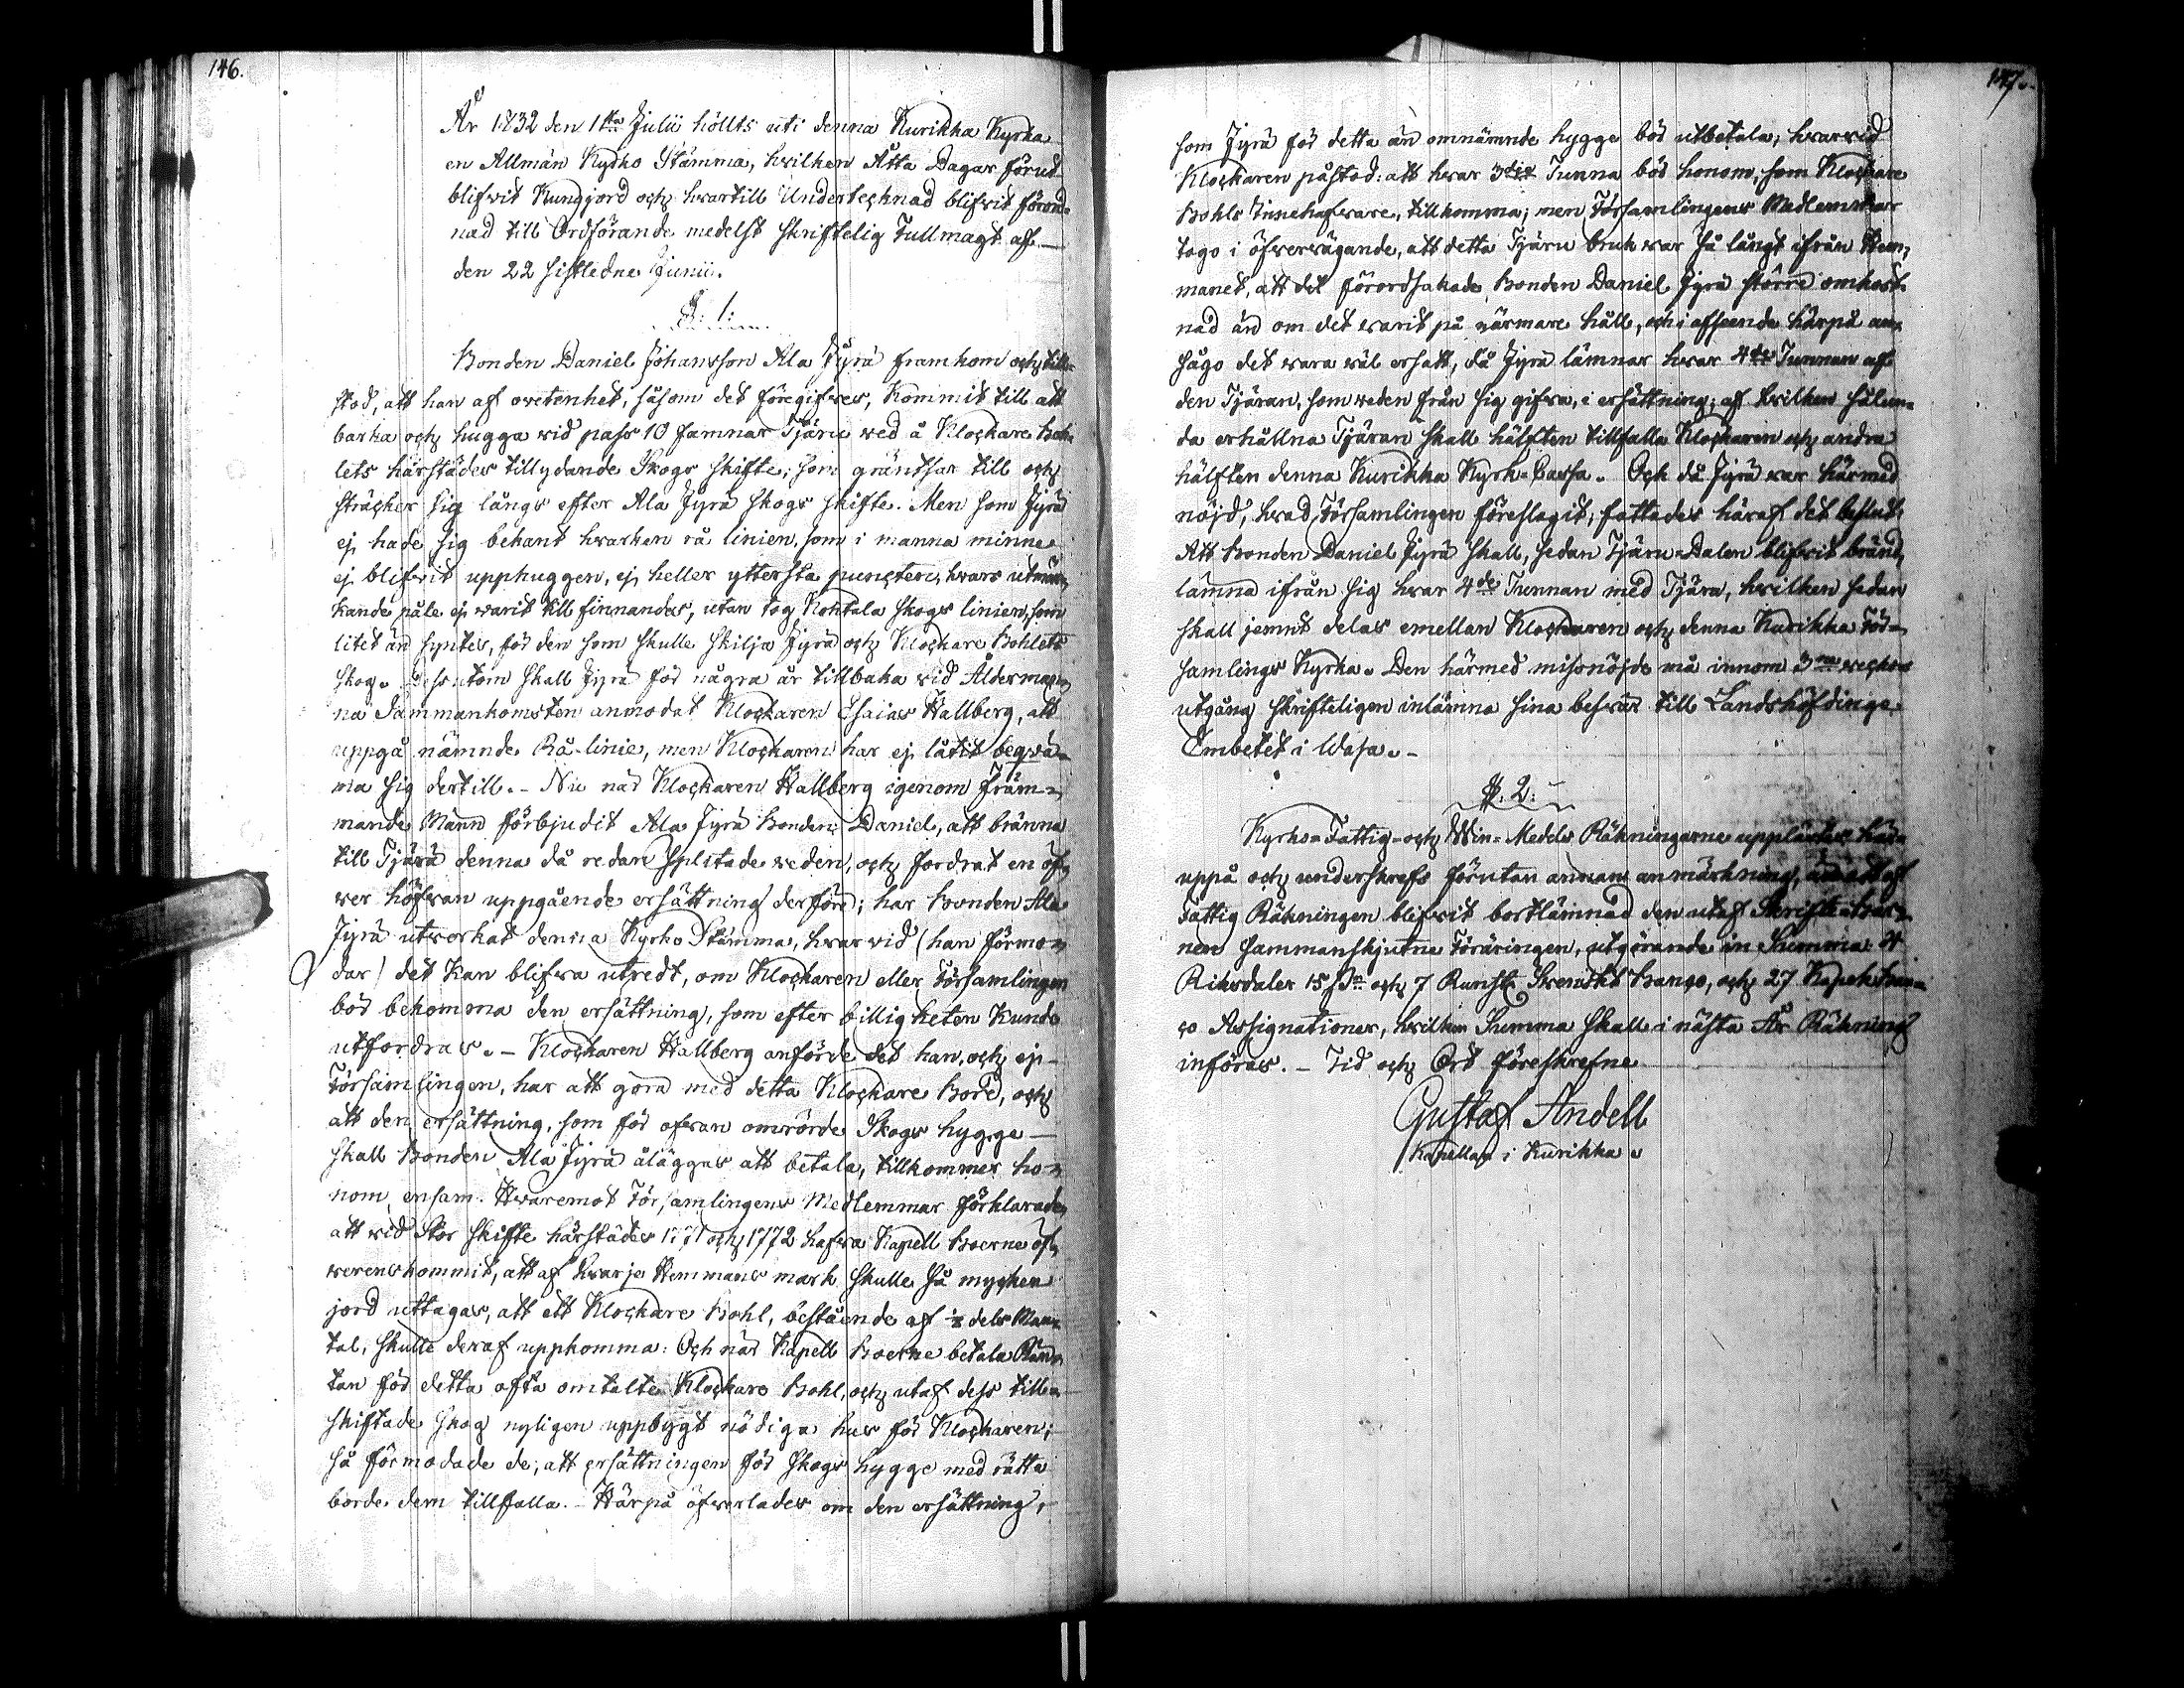 146.
År 1832 den 1sta Julii höllts uti denna Kurikka Kyrka
en Allmän Kyrko Stämma, hvilken Åtta Dagar förut
blifvit Kungjord och hvartill Undertecknad blifvit förord-
nad till Ordförande medelst skriftelig Fullmagt af
den 22 sistledne Junii.
§. 1:
Bonden Daniel Johansson Ala Jyrä framkom och till-
stod, att han af ovetenhet, såsom det föregifves, kommit till att
barka och hugga vid pass 10 famnar Tjäru ved å Klockare Boh-
lets härstädes tillydande Skogs skifte; som gräntsar till och
sträcker sig långs efter Ala Jyrä skogs skifte. Men som Jyrä
ej hade sig bekant hvarken rå linien, som i manna minne
ej blifvit upphuggen, ej heller yttersta puncten, hvars utmär-
kande påle ej varit till finnandes, utan tog Kohtala skogs linien, som
litet än syntes, för den som skulle skilja Jyrä och Klockare Bohlets
skog. Dessutom skall Jyrä för några år tillbaka vid Åldermän-
na Sammankomsten anmodat Klockaren Esaias Hallberg, att
uppgå nämnde Rå-linie, men Klockaren har ej låtit beqvä-
ma sig dertill. - Nu när Klockaren Hallberg igenom främ-
mande Männ förbjudit Ala Jyrä Bonden Daniel, att bränna
till Tjära denna då redan splitade veden, och fordrat en öf-
ver höfvan uppgående ersättning derföre; har Bonden Ala
Jyrä utverkat denna Kyrko Stämma, hvarvid (han förmo-
dar) det kan blifva utredt, om Klockaren eller Församlingen
bör bekomma den ersättning, som efter billigheten kunde
utfordras. - Klockaren Hallberg anförde det han, och ej
Församlingen, har att göra med detta Klockare Bord, och
att den ersättning, som för ofvan omrörde Skogs hygge
skall Bonden Ala Jyrä åläggas att betala, tillkommer ho-
nom ensam. Hvaremot Församlingens Medlemmar förklarade,
att vid Stor skifte härstädes 1771 och 1772 hafva Kapell Boerne öf-
verenskommit, att af hvarje Hemmans mark skulle så mycken
jord uttagas, att ett Klockare Bohl, bestående af dels Man-
tal, skulle deraf uppkomma: Och när Kapell Boerne betala Rän-
tan för detta ofta omtalte Klockare Bohl, och utaf dess till-
skiftade skog nyligen uppbygt nödiga hus för Klockaren;
så förmodade de, att ersättningen för skogs hygge med rätta
borde dem tillfalla. - Härpå öfverlades om den ersättning,
147.
som Jyrä för detta än omnämnde hygge bör utbetala, hvarvid
Klockaren påstod: att hvar 3dje Tunna bör honom, som Klockare
Bohls Innehafvare, tillkomma; men Församlingens Medlemmar
togo i öfvervägande, att detta Tjäru bruk var så långt ifrån Hem-
manet, att det förordsakade Bonden Daniel Jyrä större omkost-
nad än om det varit på närmare håll, och i afseende härpå an-
sågo det vara väl ersatt, då Jyrä lämnar hvar 4de Tunnan af
den Tjäran, som veden från sig gifva, i ersättning; af hvilken sålun-
da erhållna Tjäran skall hälften tillfalla Klockaren och andra
hälften denna Kurikka Kyrk-Cassa. Och då Jyrä var härmed
nöjd, hvad Församlingen föreslagit, fattades häraf det beslut:
Att Bonden Daniel Jyrä skall, sedan Tjäru-Dalen blifvit bränd,
lämna ifrån sig hvar 4de Tunnan med Tjära, hvilken sedan
skall jemnt delas emellan Klockaren och denna Kurikka För-
samlings Kyrka. Den härmed missnöjde må innom 3ne veckors
utgång skrifteligen inlämna sina besvär till Landshöfdinge
Embetet i Wasa. -
§. 2:
Kyrko-Fattig- och Win-Medels Räkningarne upplästes här-
uppå och underskrefs förutan annan anmärkning, än att af
Fattig Räkningen blifvit bortlämnad den utaf Skrifte-Bar-
nen sammanskjutne Föräringen, utgörande in Summa: 4
Riksdaler 15 och 7 Runst. Svenskt Banco, och 27 Kopek Ban-
co Assignationer, hvilken Summa skall i nästa År Räkning
införas. - Tid och Ort föreskrefne
Gustaf Andell
Kapellan i Kurikka.